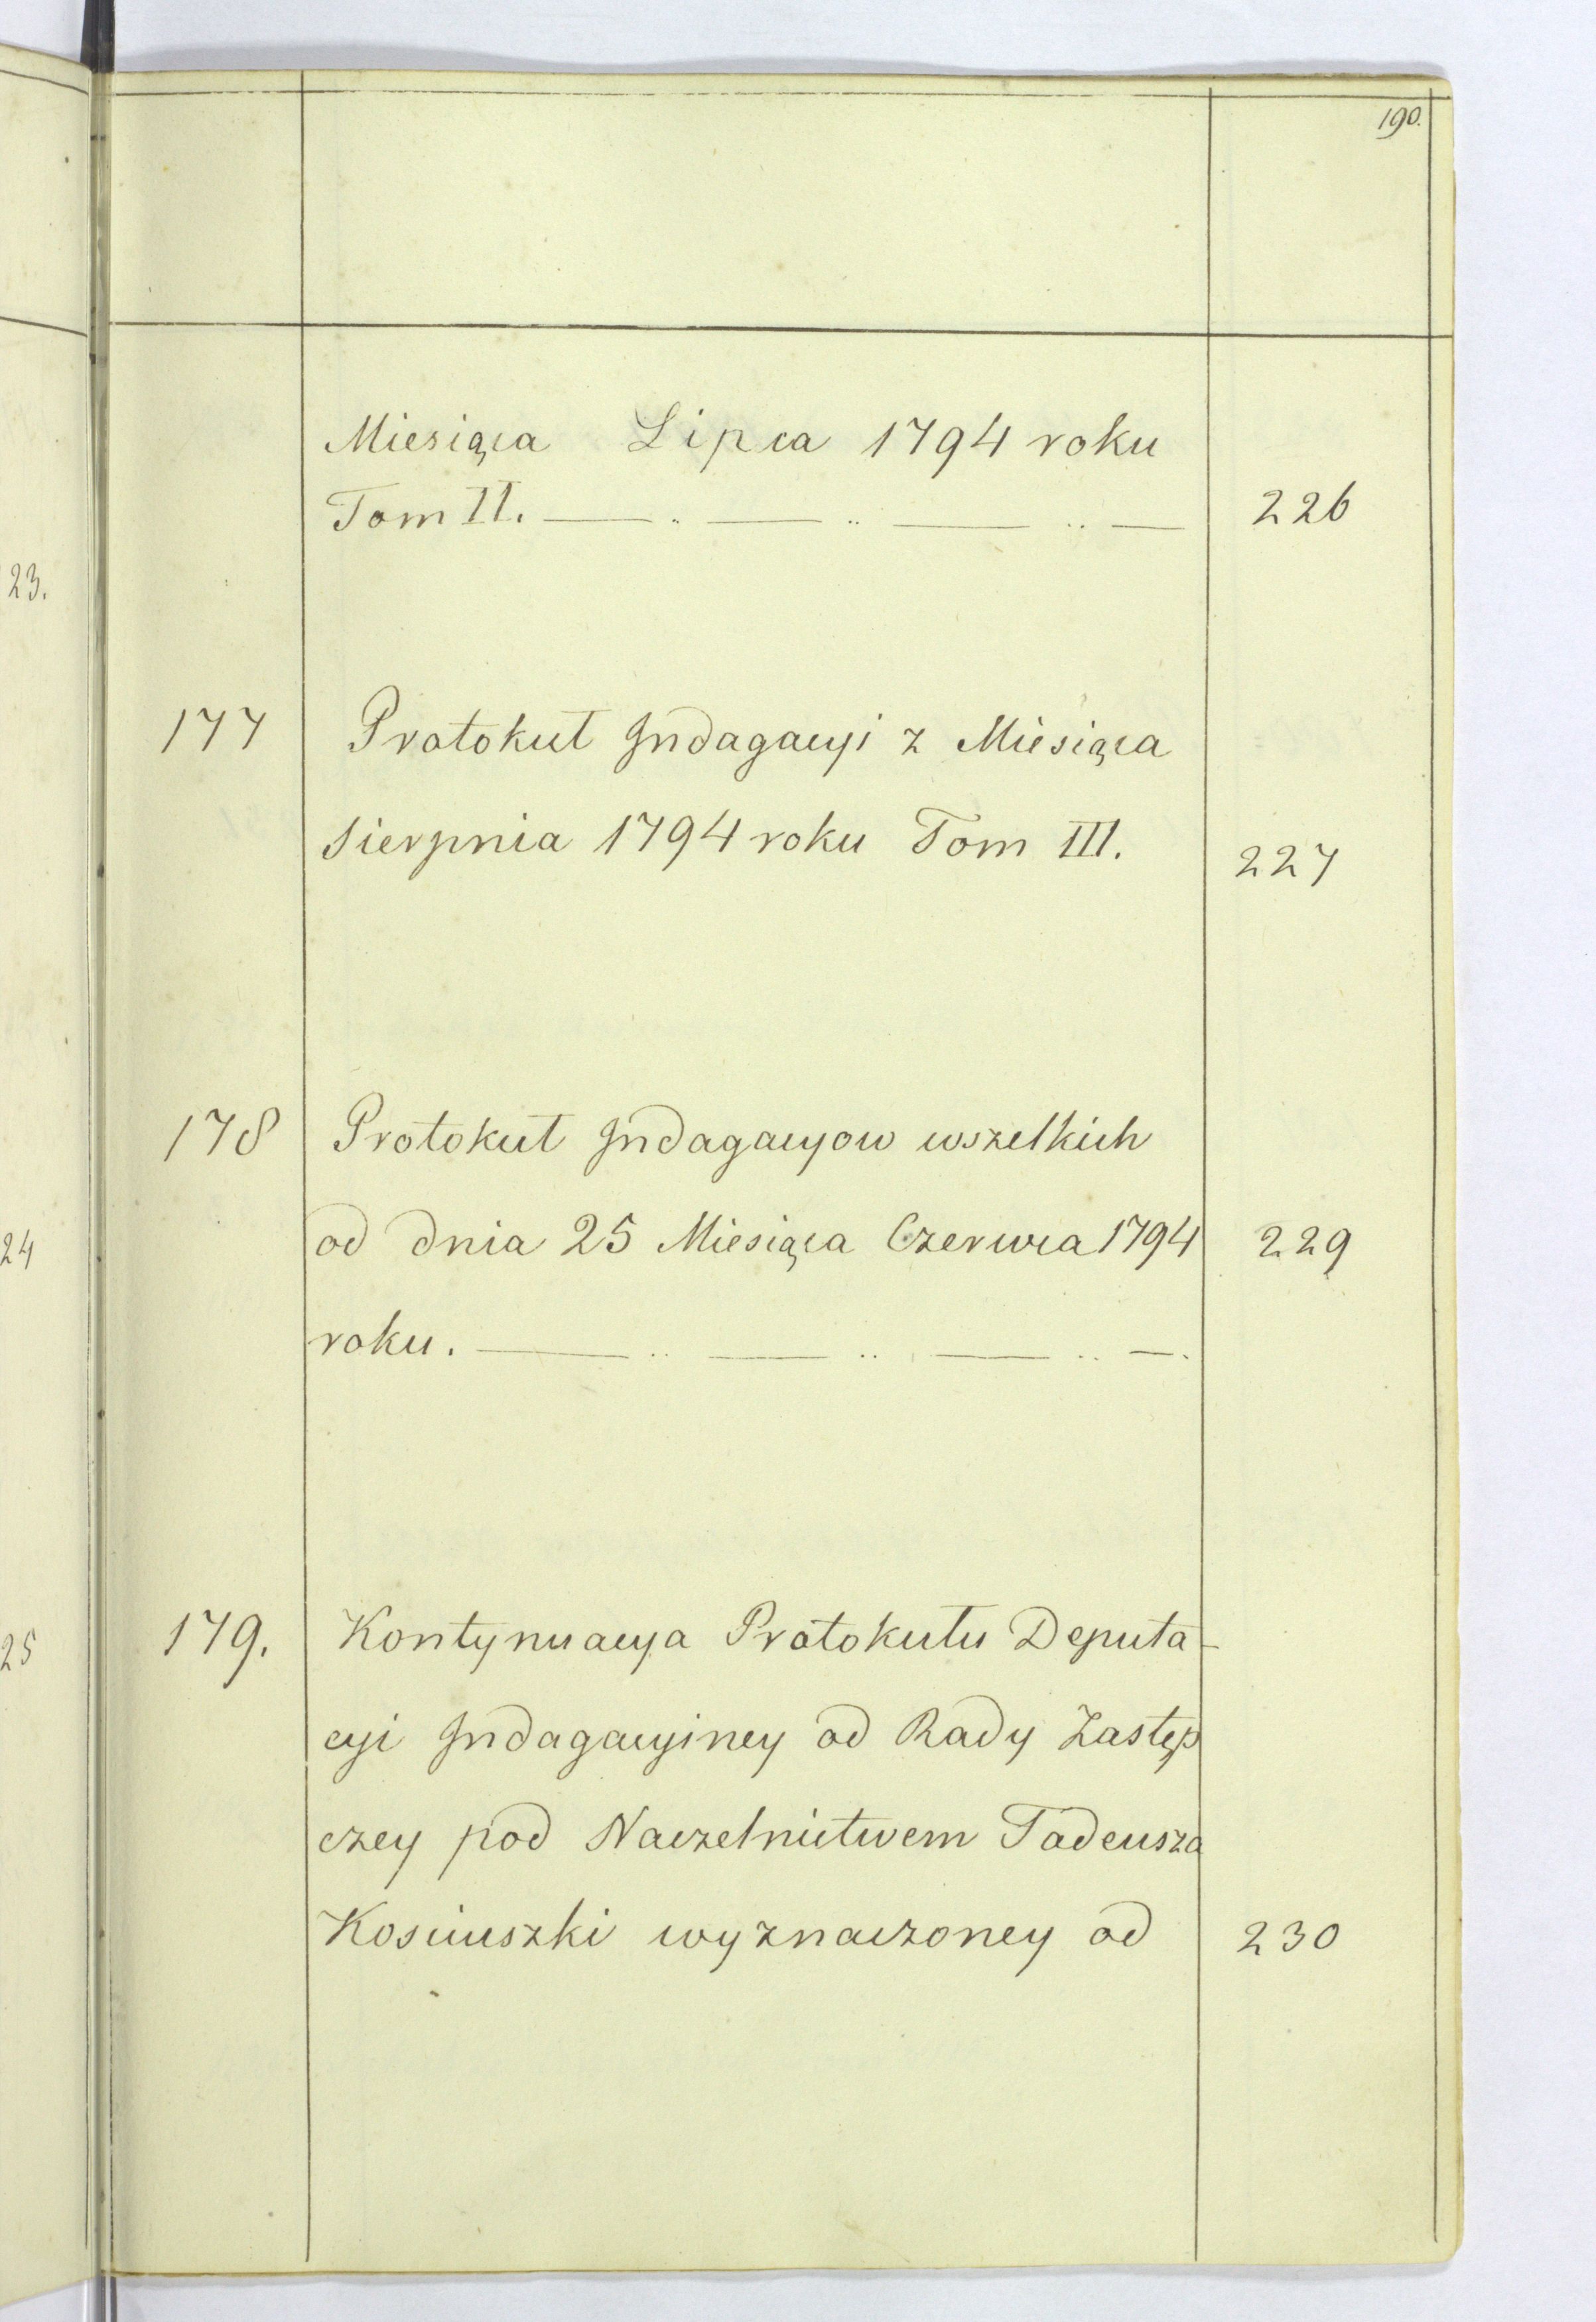 190.
Miesiąca Lipca 1794 roku
Tom II. — .. — .. — .. — 226
177 Protokuł Indagacyi z Miesiąca
Sierpnia 1794 roku Tom III. 227
178 Protokuł Indagacyow wszelkich
od dnia 25 Miesiąca Czerwca 1794 229
roku. — .. — .. — .. —.
179. Kontynuacya Protokułu Deputa-
cyi Indagacyiney od Rady Zastęp
czey pod Naczelnictwem Tadeusza
Kosciuszki wyznaczoney od 230
23.
24
25